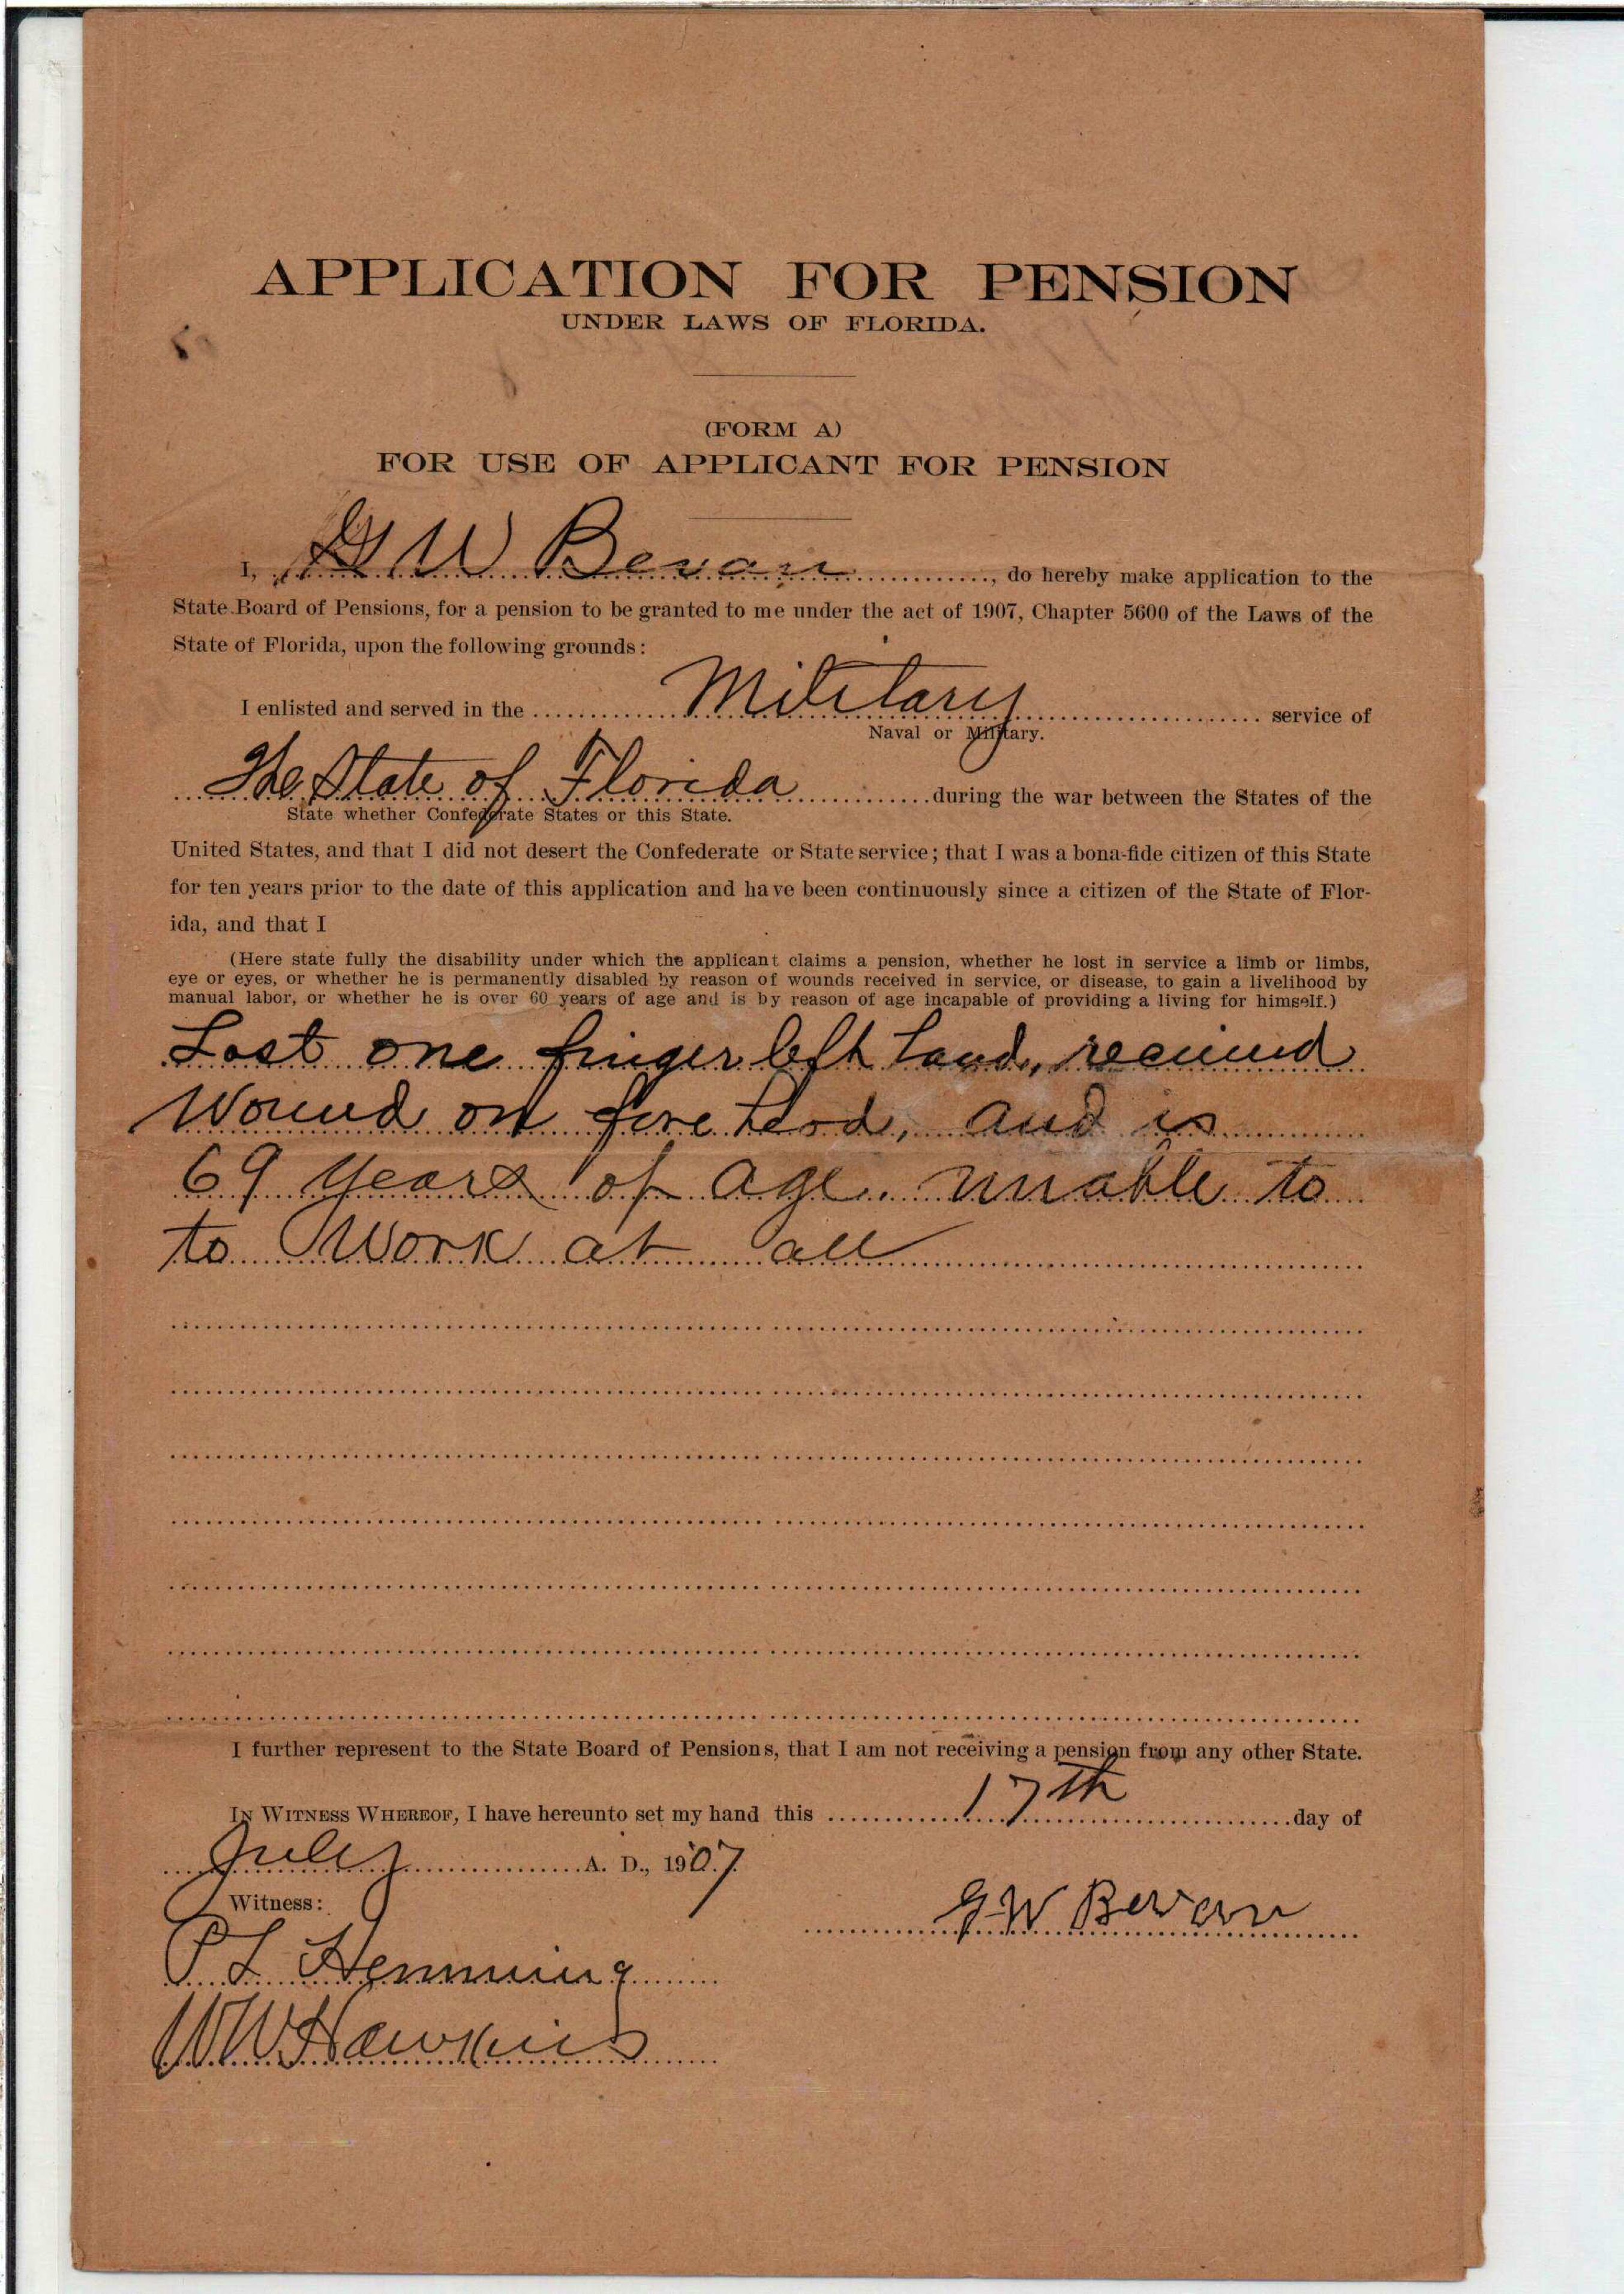 APPLICATION FOR PENSION
UNDER LAWS OF FLORIDA.
(FORM A)
FOR USE OF APPLICANT FOR PENSION
I, G W Bevan, do hereby make application to the
State Board of Pensions, for a pension to be granted to me under the act of 1907, Chapter 5600 of the Laws of the
State of Florida, upon the following grounds:
I enlisted and served in the Military service of
Naval or Military.
The State of Florida during the war between the States of the
State whether Confederate States or this State.
United States, and that I did not desert the Confederate or State service; that I was a bona-fide citizen of this State
for ten years prior to the date of this application and have been continuously since a citizen of the State of Flor-
ida, and that I
(Here state fully the disability under which the applicant claims a pension, whether he lost in service a limb or limbs,
eye or eyes, or whether he is permanently disabled by reason of wounds received in service, or disease, to gain a livelihood by
manual labor, or whether he is over 60 years of age and is by reason of age incapable of providing a living for himself.)
Lost one finger left hand, recieved
Wound on fore head, and is
69 years of age. unable to
to Work at all
I further represent to the State Board of Pensions, that I am not receiving a pension from any other State.
IN WITNESS WHEREOF, I have hereunto set my hand this 17th day of
July A. D., 1907.
Witness:
G W Bevan
P L Hemming
W W Hawkins